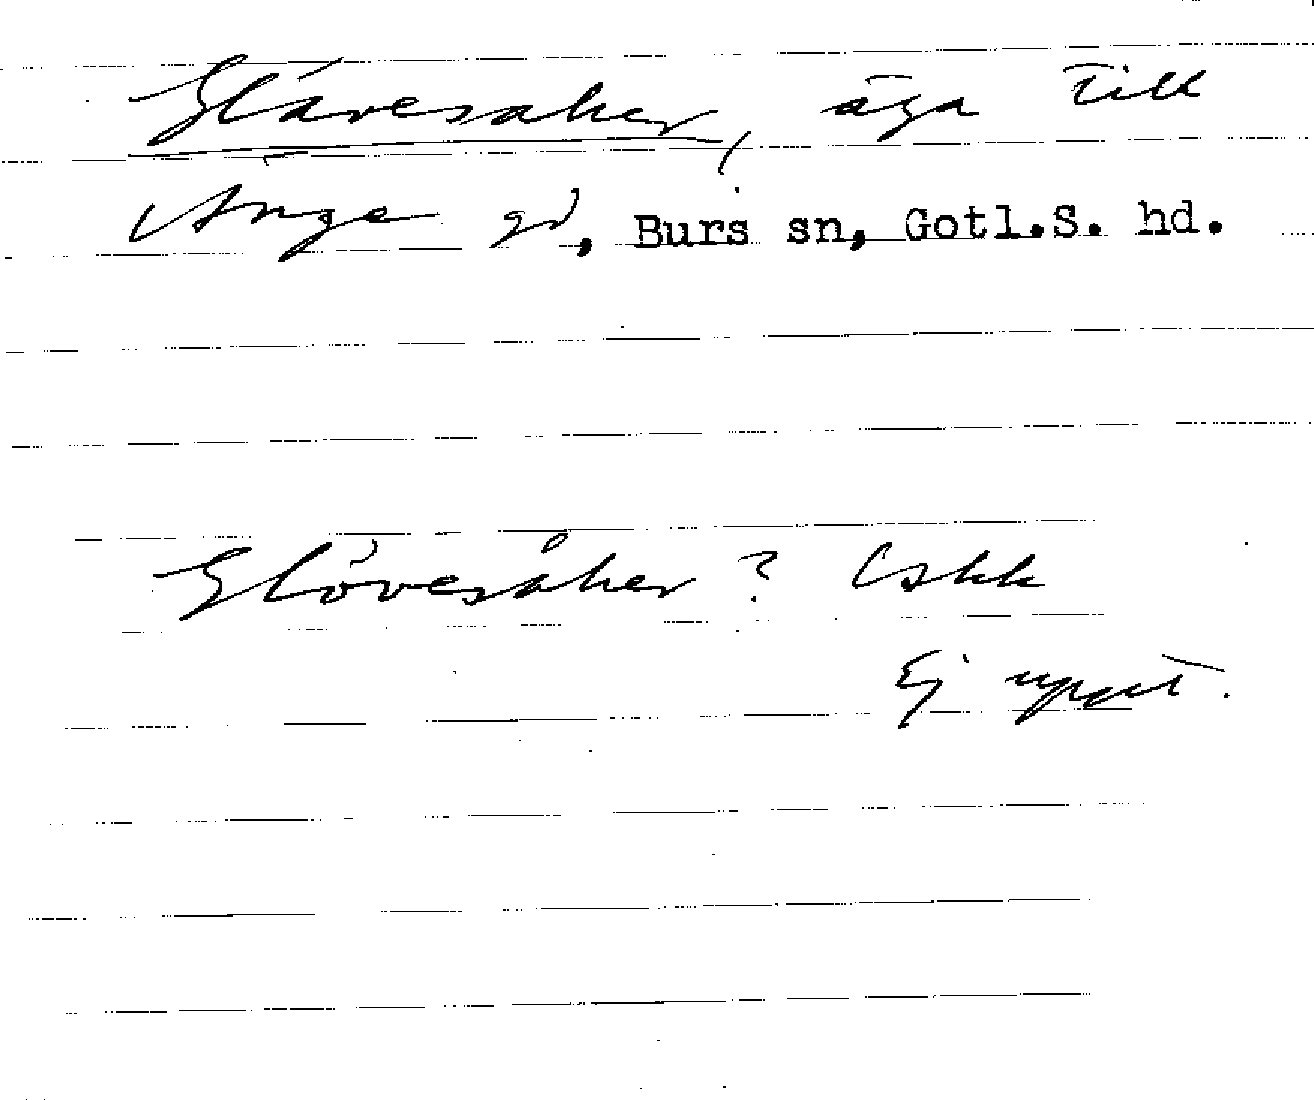 Glävesaker, äga till
Änge gd, Burs sn, Gotl.S. hd.
Glövesåker? Lskk
Ej uppt.